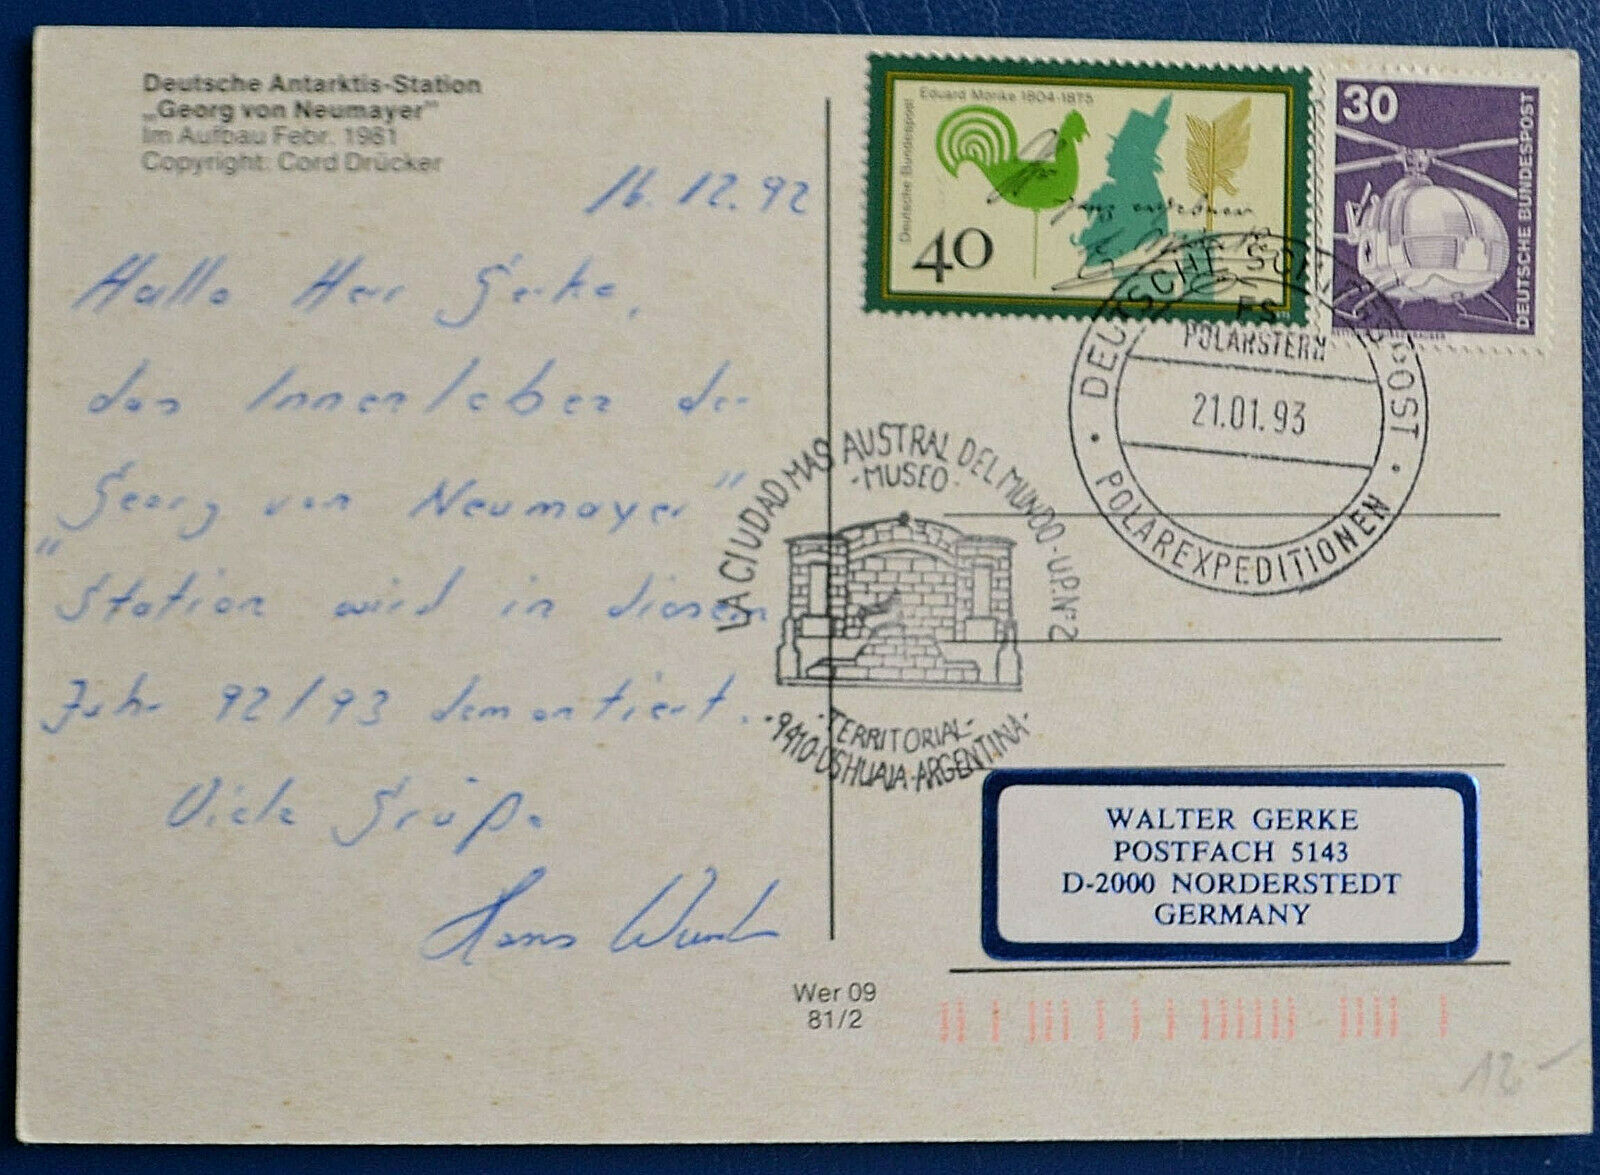 Deutsche Antarktis-Station
„Georg von Neumayer"
Im Aufbau Febr. 1981
Copyright: Cord Drücker
16.12.92
Hallo Herr Gerke,
das Innenleben der
„Georg von Neumayer"
Station wird in diesem
Jahr 92/93 demontiert.
Viele Grüße
Hans
Wer 09
81/2
Eduard Mörike 1804-1875
Deutsche Bundespost
40
30
DEUTSCHE BUNDESPOST
DEUTSCHE SCHIFFSPOST
FS
POLARSTERN
21.01.93
POLAREXPEDITIONEN
LA CIUDAD MAS AUSTRAL DEL MUNDO - U.P.Nº2
-MUSEO-
-TERRITORIAL-
-9410-USHUAIA-ARGENTINA-
WALTER GERKE
POSTFACH 5143
D-2000 NORDERSTEDT
GERMANY
12-